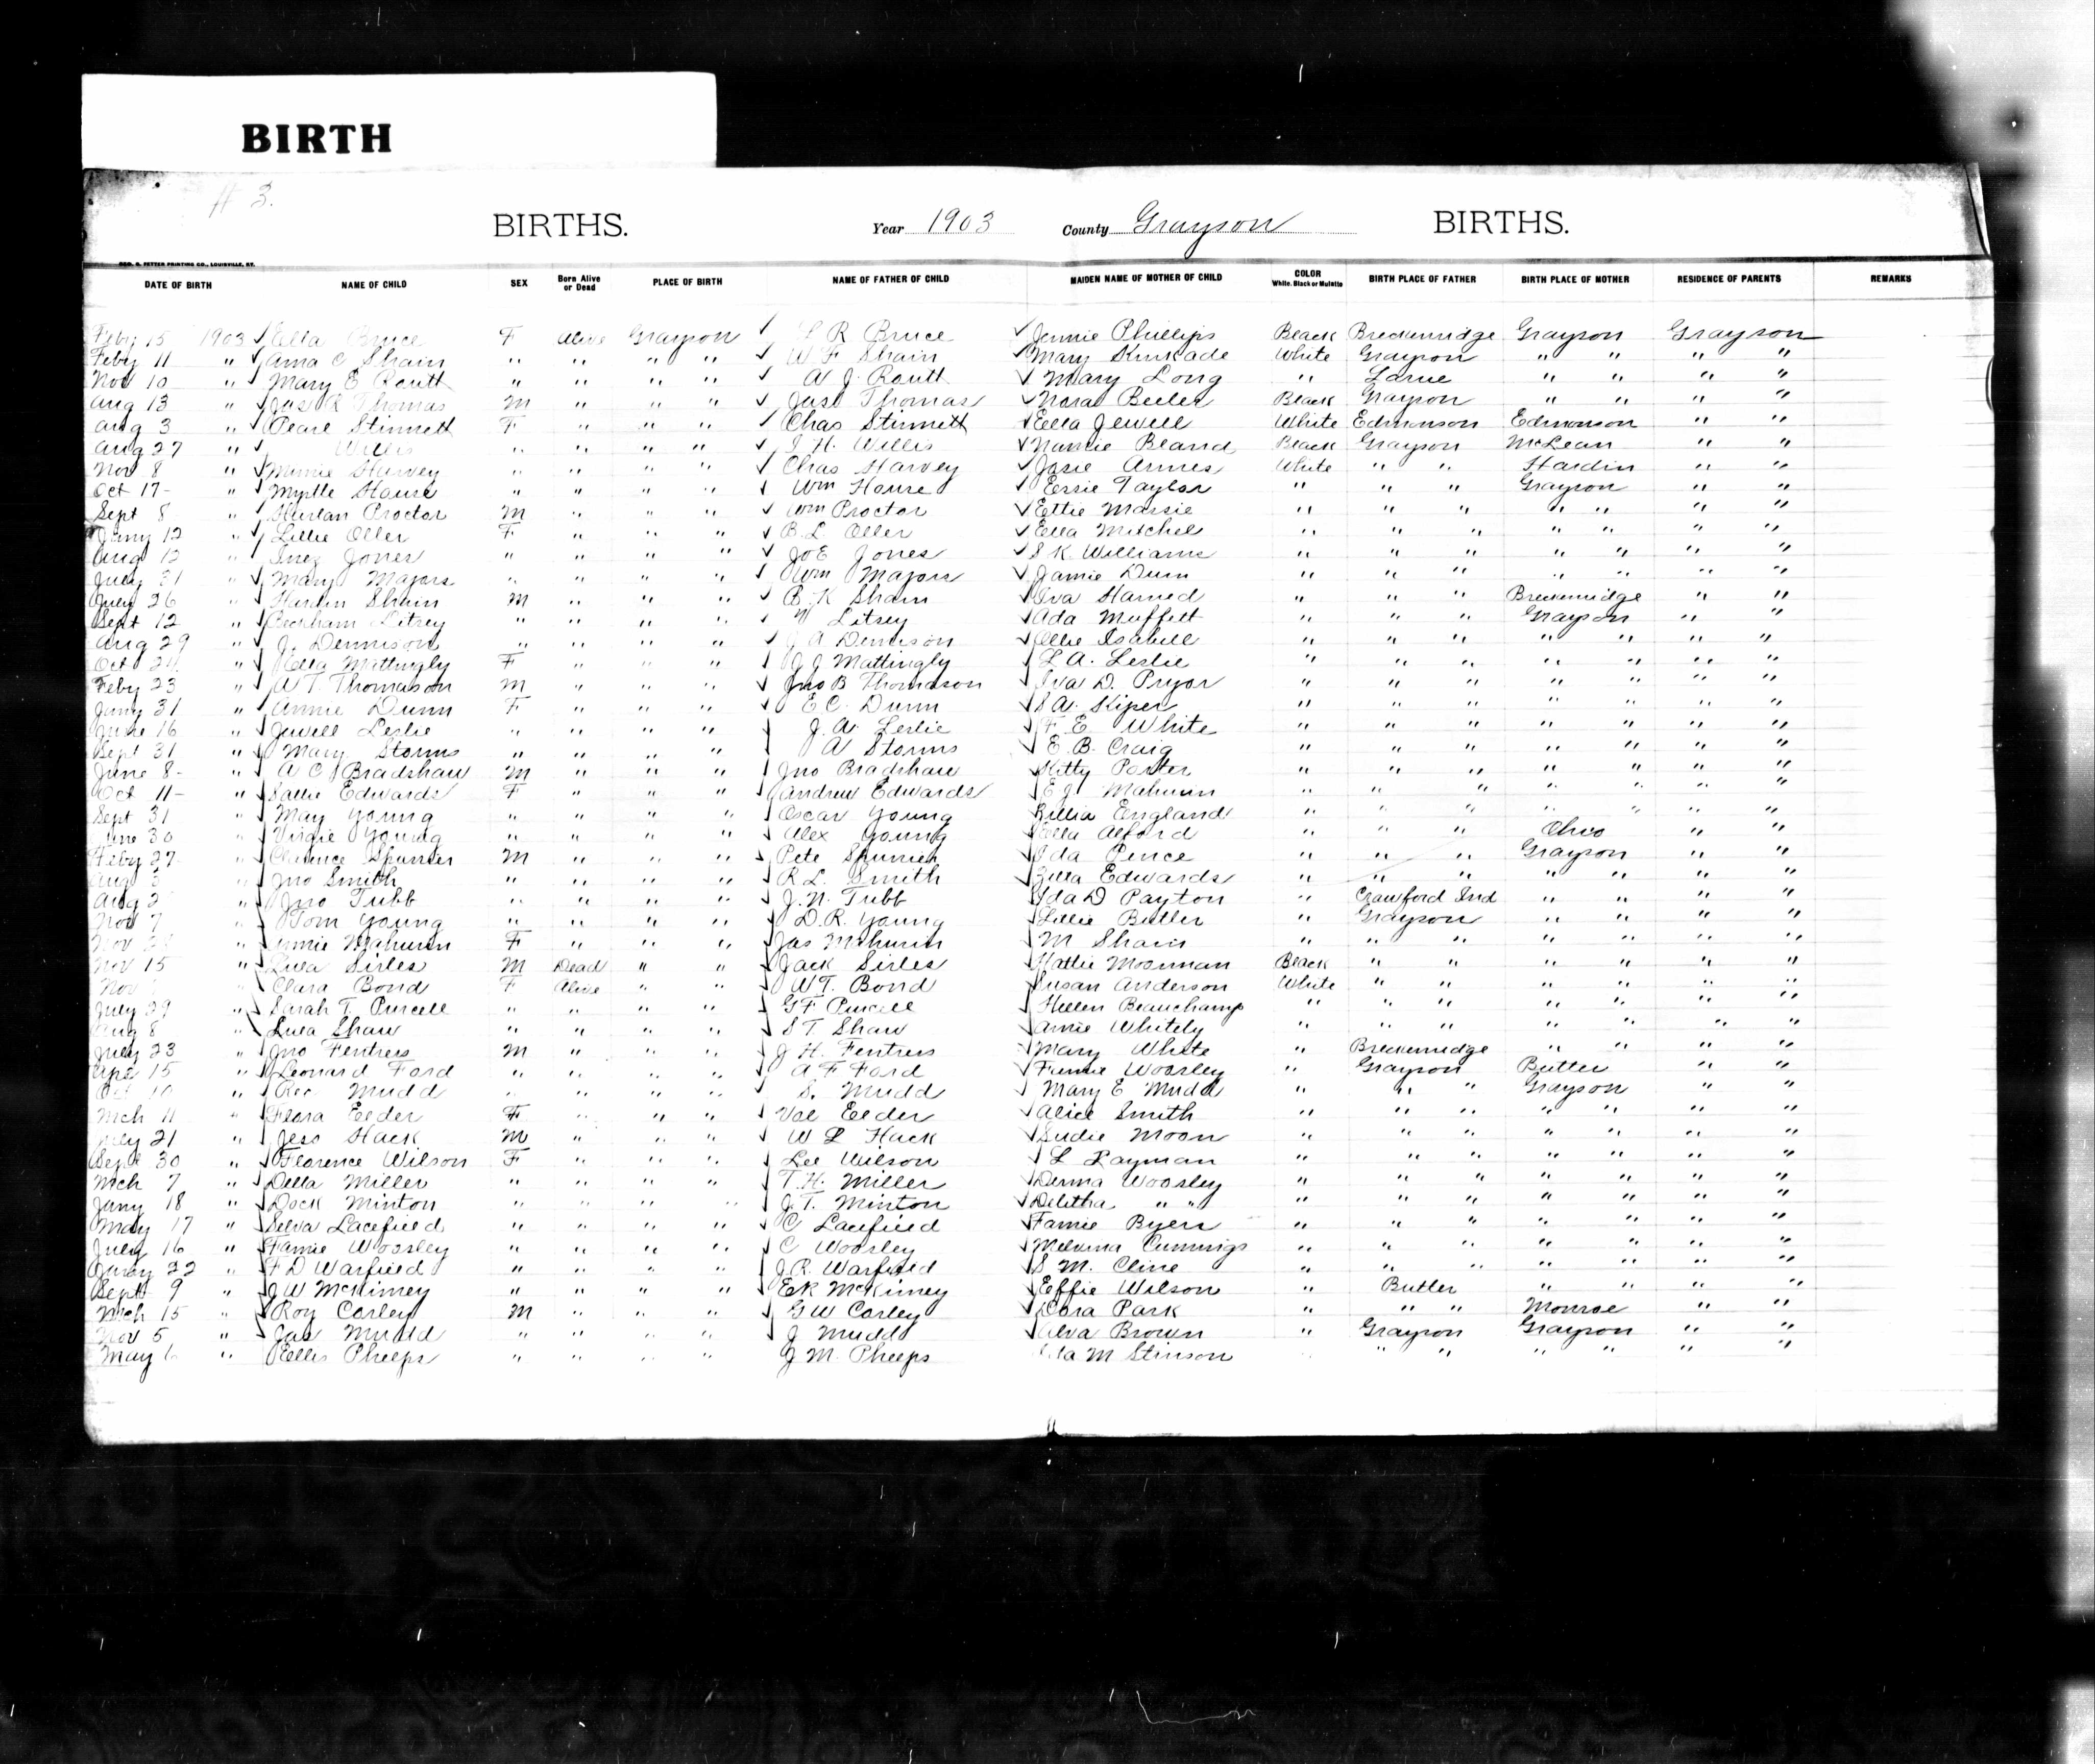 BIRTH
# 3.
BIRTHS. Year 1903 County Grayson BIRTHS.
GEO. G. FETTER PRINTING CO., LOUISVILLE, KY.
DATE OF BIRTH NAME OF CHILD SEX Born Alive or Dead PLACE OF BIRTH NAME OF FATHER OF CHILD MAIDEN NAME OF MOTHER OF CHILD COLOR White, Black or Mulatto BIRTH PLACE OF FATHER BIRTH PLACE OF MOTHER RESIDENCE OF PARENTS REMARKS
Feby 15 1903 Ella Bruce F Alive Grayson L R Bruce Jennie Phillips Black Breckenridge Grayson Grayson
Feby 11 " Ama C Shain " " " " W F Shain Mary Kinkade White Grayson " " " "
Nov 10 " Mary E Routt " " " " A J. Routt Mary Long " Larue " " " "
Aug 13 " Jas R Thomas M " " " Jas Thomas Nora Beeler Black Grayson " " " "
Aug 3 " Pearl Stinnett F " " " Chas Stinnett Ella Jewell White Edmonson Edmonson " "
Aug 27 " Willis " " " " J. H. Willis Nannie Bland Black Grayson McLean " "
Nov 8 " Mamie Harvey " " " " Chas Harvey Josie Armes White " " Hardin " "
Oct 17 " Myrtle House " " " " Wm House Essie Taylor " " " Grayson " "
Sept 8 " Harlan Proctor M " " " Wm Proctor Ettie Massie " " " " " " "
Jany 12 " Lillie Oller F " " " B. L. Oller Ella Mitchel " " " " " " "
Aug 12 " Inez Jones " " " " Jo E Jones S K. Williams " " " " " " "
July 21 " Mary Majors " " " " Wm Majors Jamie Dunn " " " " " " "
July 26 " Hardin Shain M " " " B. K Shain Eva Harned " " " Breckenridge " "
Sept 12 " Beckham Litsey " " " " Litsey Ada Muffett " " " Grayson " "
Aug 29 " J. Dennison " " " " J A Dennison Ollie Isabell " " " " " " "
Oct 24 " Ella Mattingly F " " " J J Mattingly L A. Leslie " " " " " " "
Feby 23 " A T. Thomason M " " " Jno B Thomason Iva D. Pryor " " " " " " "
Jany 31 " Annie Dunn F " " " E C. Dunn S A. Kiper " " " " " " "
June 16 " Jewell Leslie " " " " J. A. Leslie F. E White " " " " " " "
Sept 31 " Mary Storms " " " " A Storms E. B. Craig " " " " " " "
June 8 " A C Bradshaw M " " " Jno Bradshaw Kitty Porter " " " " " " "
Oct 11 " Sallie Edwards F " " " Andrew Edwards E J Mahurin " " " " " " "
Sept 31 " May Young " " " " Oscar Young Lillia England " " " " " " "
June 30 " Virgie Young " " " " Alex Young Ella Alford " " " Ohio " "
Feby 27 " Clarence Spurrier M " " " Pete Spurrier Ida Pence " " " Grayson " "
Aug " Jno Smith " " " " R L. Smith Zilla Edwards " " " " " " "
Aug 2 " Jno Tubb " " " " J. N. Tubb Ida D Payton " Crawford Ind " " " "
Nov 7 " Tom Young " " " " D. R. Young Lillie Butler " Grayson " " " "
Nov " Mahurin F " " " Jas Mahurin M Shain " " " " " " "
Nov 15 " Lula Sirles M Dead " " Jack Sirles Hattie Moorman Black " " " " " "
Nov " Clara Bond F Alive " " W T. Bond Susan Anderson White " " " " " "
July 29 " Sarah T. Purcell " " " " G F Purcell Hellen Beauchamp " " " " " " "
Aug 8 " Lula Shaw " " " " S T Shaw Amie Whitely " " " " " " "
July 23 " Jno Fentress M " " " J H. Fentress Mary White " Breckenridge " " " "
Apr 15 " Leonard Ford " " " " A F Ford Fannie Woosley " Grayson Butler " "
Oct 10 " Mudd " " " " S. Mudd Mary E Mudd " " " Grayson " "
Mch 11 " Flora Elder F " " " Val Elder Alice Smith " " " " " " "
July 21 " Jess Hack M " " " W L Hack Sudie Moon " " " " " " "
Sept 30 " Florence Wilson F " " " Lee Wilson L Layman " " " " " " "
Mch 7 " Della Miller " " " " T. H. Miller Derma Woosley " " " " " " "
Jany 18 " Dock Minton " " " " J. T. Minton Delitha " " " " " " " " "
May 17 " Selva Lacefield " " " " C Lacefield Famie Byers " " " " " " "
July 16 " Famie Woosley " " " " C Woosley Melvina Cummings " " " " " " "
Jany 22 " F D Warfield " " " " J. R. Warfield S M. Cline " " " " " " "
Sept 9 " J. W McKinney " " " " E K McKinney Effie Wilson " Butler " " " "
Mch 15 " Roy Carley M " " " G W Carley Dora Park " " " Monroe " "
Nov 5 " Jas Mudd " " " " J Mudd Alva Brown " Grayson Grayson " "
May 6 " Ellis Phelps " " " " J M. Phelps M Stinson " " " " " "